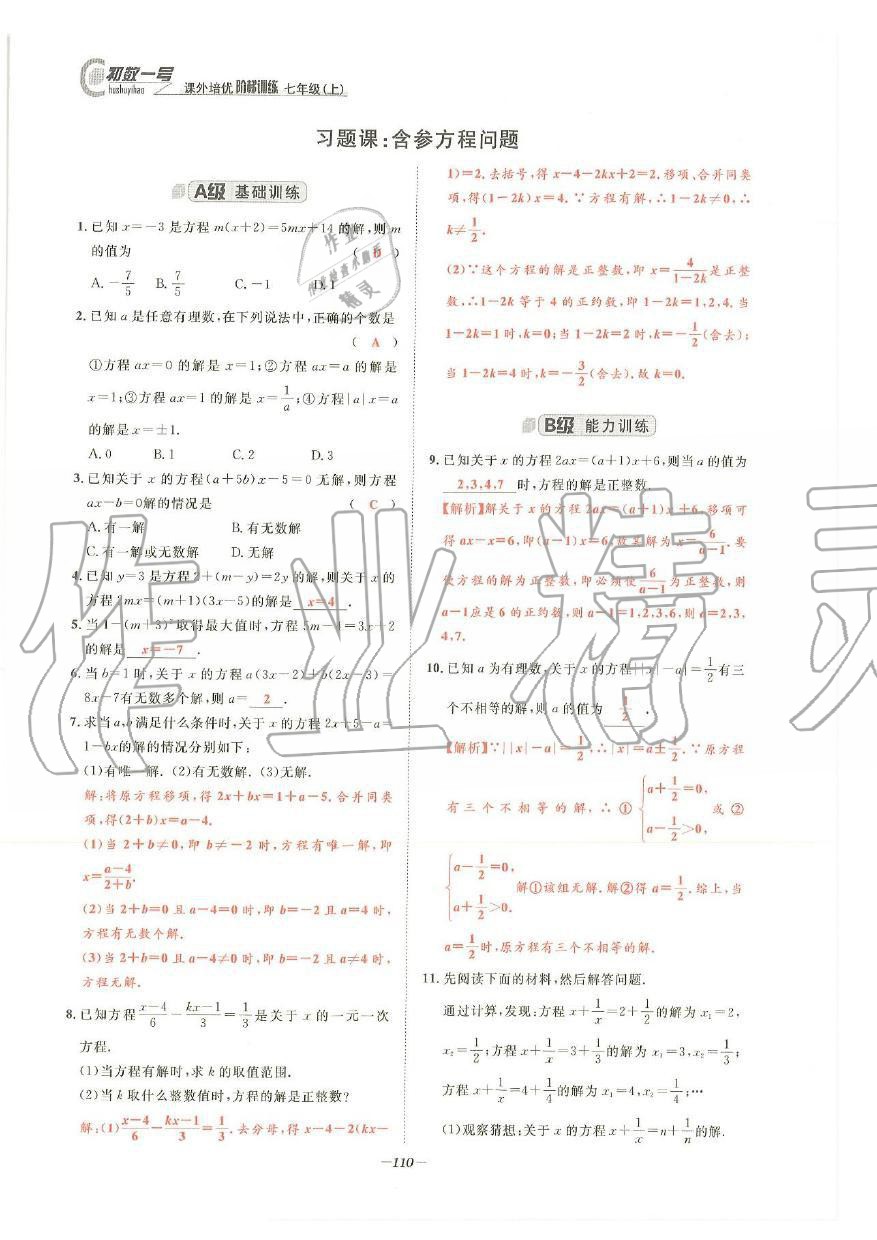 初数一号
chushuyihao
课外培优 阶梯训练 七年级(上)
习题课:含参方程问题
A级 基础训练
1.已知x=-3是方程m(x+2)=5mx+14的解,则m
的值为 ( D )
A.-7/5 B.7/5 C.-1 D.1
2.已知a是任意有理数,在下列说法中,正确的个数是
( A )
①方程ax=0的解是x=1;②方程ax=a的解是
x=1;③方程ax=1的解是x=1/a;④方程|a|x=a
的解是x=±1.
A.0 B.1 C.2 D.3
3.已知关于x的方程(a+5b)x-5=0无解,则方程
ax-b=0解的情况是 ( C )
A.有一解 B.有无数解
C.有一解或无数解 D.无解
4.已知y=3是方程2+(m-y)=2y的解,则关于x的
方程2mx=(m+1)(3x-5)的解是 x=4 .
5.当1-(m+3)²取得最大值时,方程5m-1=3x+2
的解是 x=-7 .
6.当b=1时,关于x的方程a(3x-2)+b(2x-3)=
8x-7有无数多个解,则a= 2 .
7.求当a,b满足什么条件时,关于x的方程2x+5-a=
1-bx的解的情况分别如下:
(1)有唯一解.(2)有无数解.(3)无解.
解:将原方程移项,得2x+bx=1+a-5.合并同类
项,得(2+b)x=a-4.
(1)当2+b≠0,即b≠-2时,方程有唯一解,即
x=(a-4)/(2+b).
(2)当2+b=0且a-4=0时,即b=-2且a=4时,
方程有无数个解.
(3)当2+b=0且a-4≠0时,即b=-2且a≠4时,
方程无解.
8.已知方程(x-4)/6-(kx-1)/3=1/3是关于x的一元一次
方程.
(1)当方程有解时,求k的取值范围.
(2)当k取什么整数值时,方程的解是正整数?
解:(1)(x-4)/6-(kx-1)/3=1/3.去分母,得x-4-2(kx-
1)=2.去括号,得x-4-2kx+2=2.移项、合并同类
项,得(1-2k)x=4.∵方程有解,∴1-2k≠0,∴
k≠1/2.
(2)∵这个方程的解是正整数,即x=4/(1-2k)是正整
数,∴1-2k等于4的正约数,即1-2k=1,2,4.当
1-2k=1时,k=0;当1-2k=2时,k=-1/2(舍去);
当1-2k=4时,k=-3/2(舍去).故k=0.
B级 能力训练
9.已知关于x的方程2ax=(a+1)x+6,则当a的值为
2,3,4,7 时,方程的解是正整数.
【解析】解关于x的方程2ax=(a+1)x+6.移项可
得ax-x=6,即(a-1)x=6.故其解为x=6/(a-1).要
使方程的解为正整数,即必须使6/(a-1)为正整数,则
a-1应是6的正约数,则a-1=1,2,3,6,则a=2,3,
4,7.
10.已知a为有理数,关于x的方程||x|-a|=1/2有三
个不相等的解,则a的值为 1/2 .
【解析】∵||x|-a|=1/2,∴|x|=a±1/2.∵原方程
有三个不相等的解,∴①{a+1/2=0, a-1/2>0, 或②
{a-1/2=0, a+1/2>0. 解①该组无解.解②得a=1/2.综上,当
a=1/2时,原方程有三个不相等的解.
11.先阅读下面的材料,然后解答问题.
通过计算,发现:方程x+1/x=2+1/2的解为x₁=2,
x₂=1/2;方程x+1/x=3+1/3的解为x₁=3,x₂=1/3;
方程x+1/x=4+1/4的解为x₁=4,x₂=1/4;…
(1)观察猜想:关于x的方程x+1/x=n+1/n的解.
—110—
作业精灵